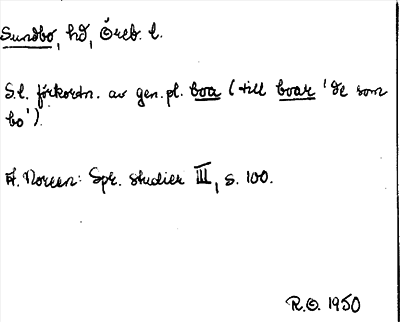 Sundbo, hd, Öreb. l.
S.l. förkortn. av gen. pl. boa (till boar 'de som
bo').
A. Noreen: Spr. studier III, s. 100.
R.O. 1950